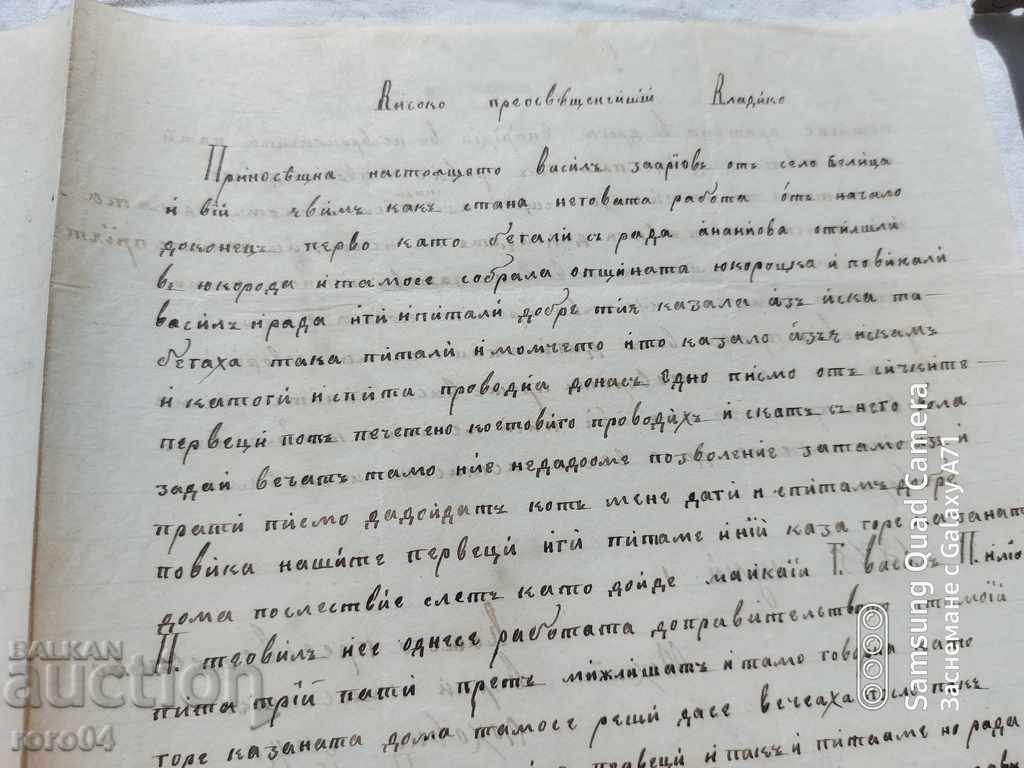 Високо преосвѣщенѣйшій Владико
Приносѣщна настоящето василъ заарїовъ отъ село Белица
и вій какъ стана неговата работа отъ начало
доконецъ перво като бегали съ рада ананїова отишли
въ юкороди итамосе собрала општината юкорошка и повикали
василъ ирада иги испитали добре тия казала азъ иска та-
бегаха така питали имомчето ито казало азъ искамъ
и катоги испита проводиа донасъ едно писмо отъ сичките
первеци потъ печетено коетовиго проводихъ искатъ съ него
задай вечатъ тамо ние недадооме позволение затамо азъ и
прати писмо дадойдатъ котъ мене даги испитамъ добре
повика нашите первеци иги питаме иній каза горе казанат
дома послествие слетъ като дойде майкаїи Г. васил П. илїо
П. теовилъ нее однесе работата доправителство и тамоїй
пита трїй пати претъ межлишатъ итамо говори като
горе казаната дома тамосе реши дасе вечеаха после пакъ
первеци ипакъ и питааме но рада
BALKAN
auction
roro04
Samsung Quad Camera
Заснемане с Galaxy A71